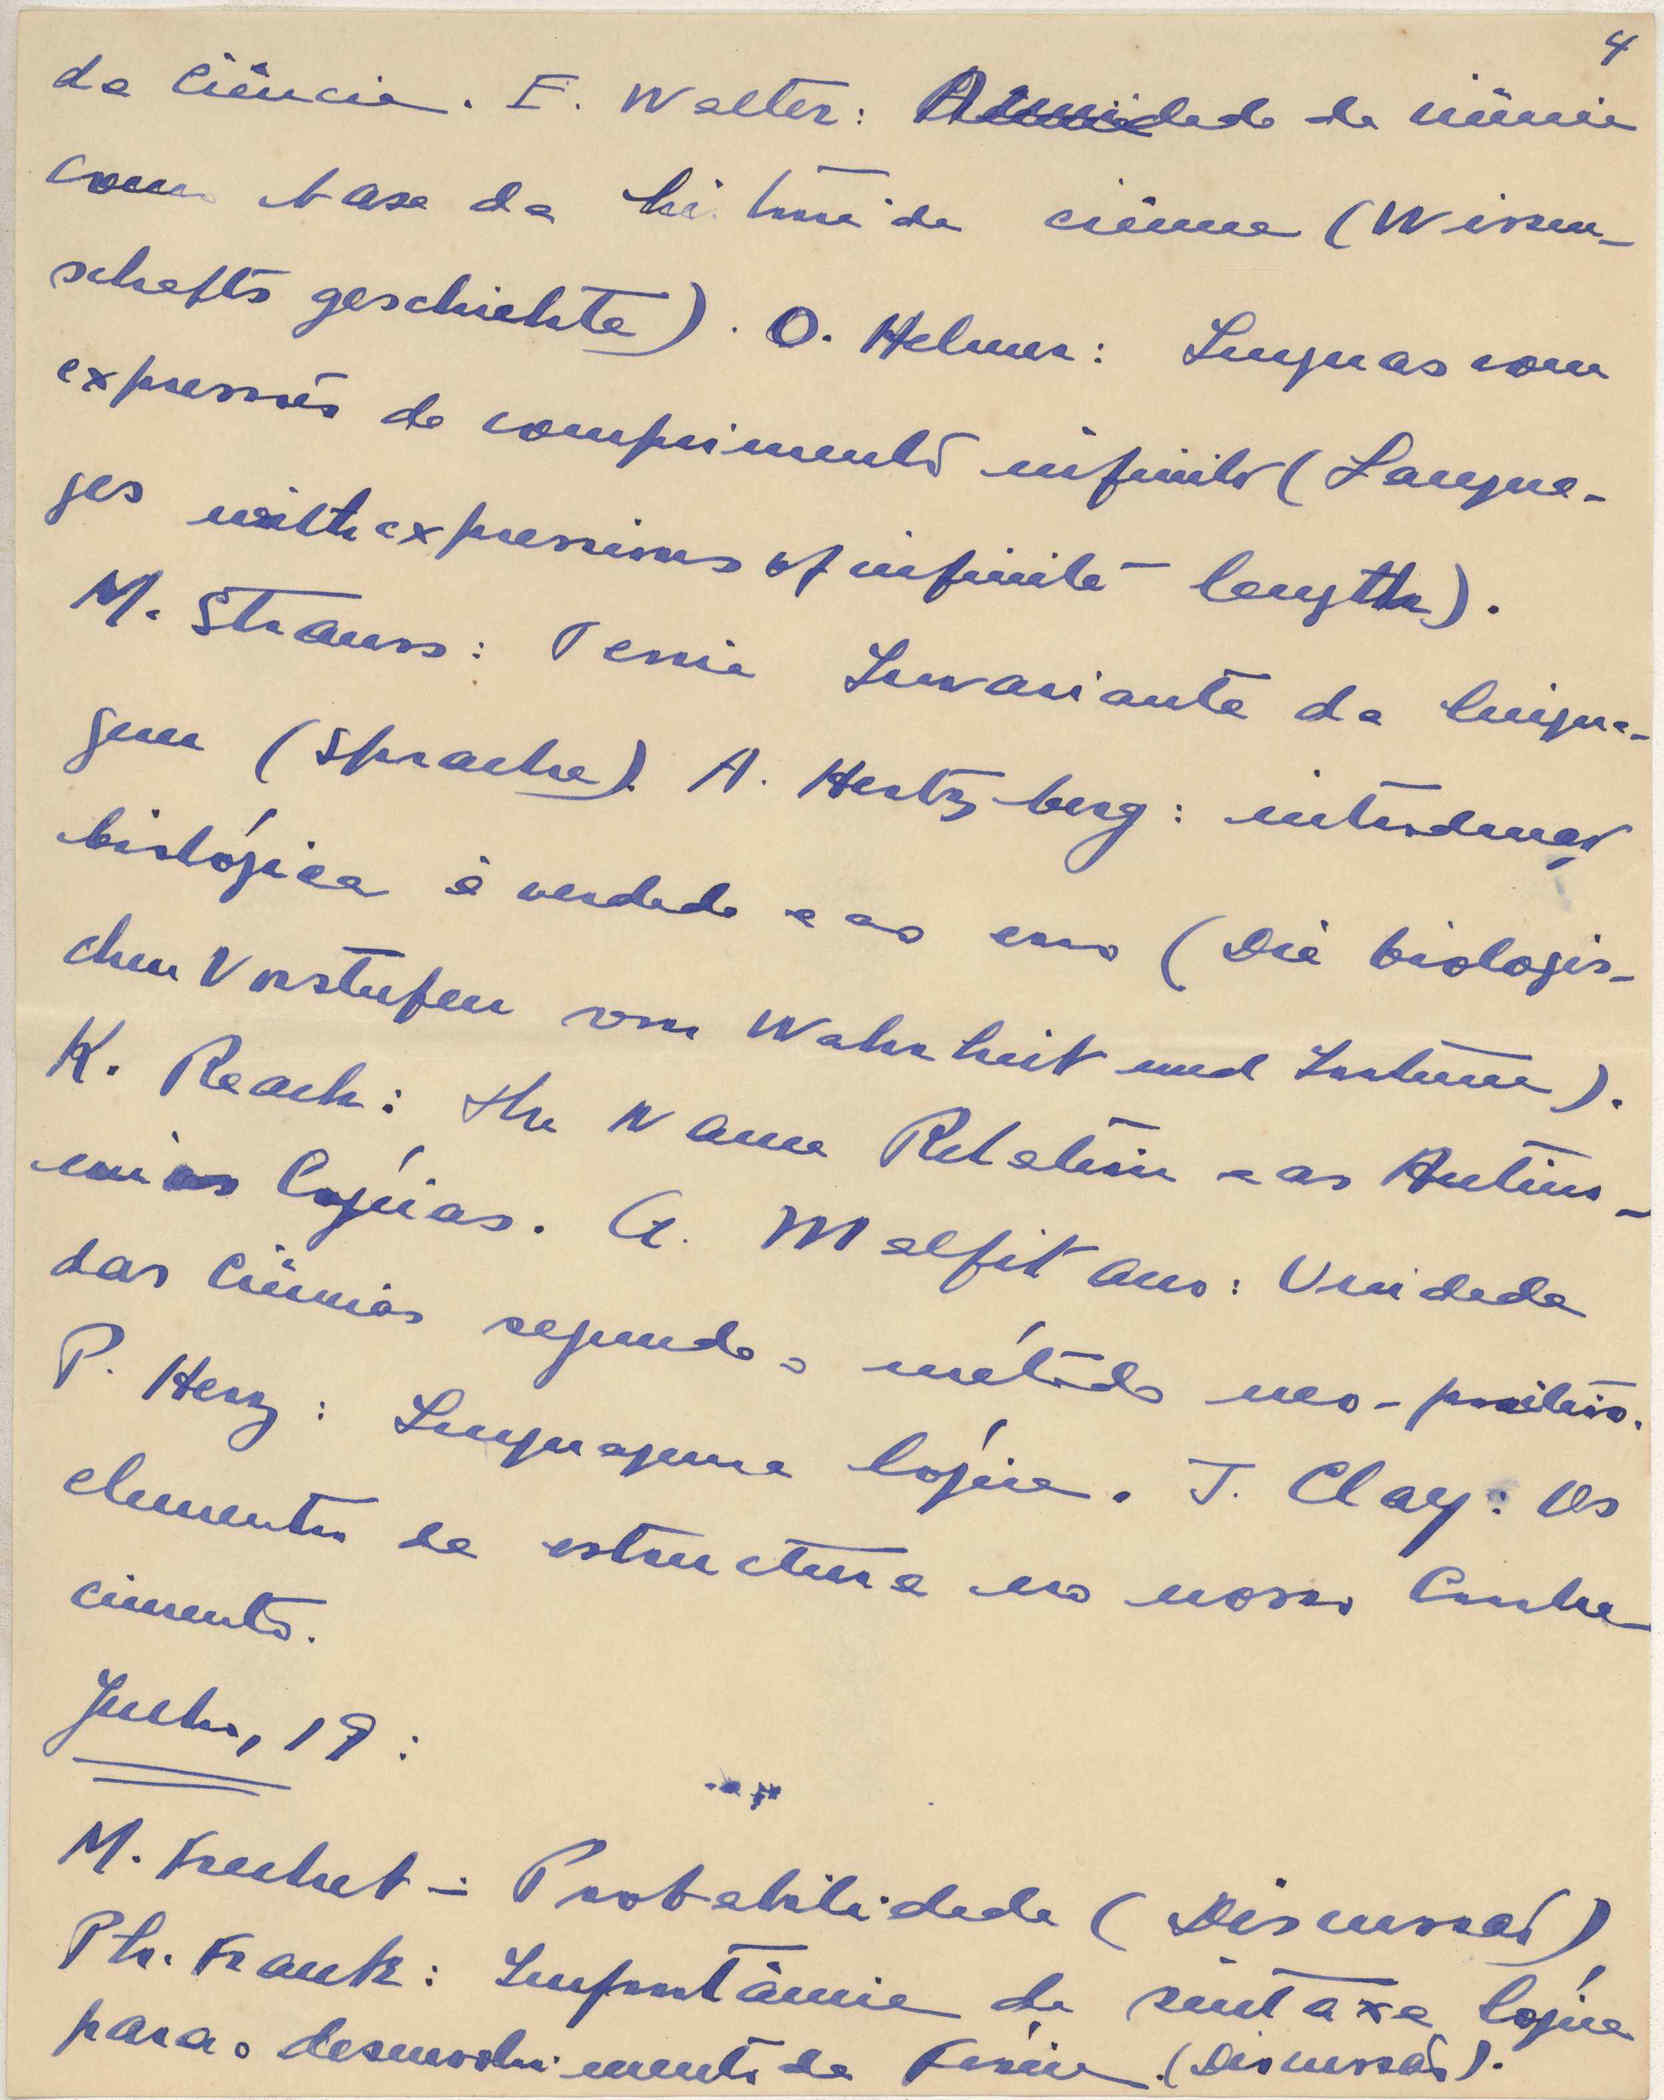 4
da Ciência. E. Walter: A unidade da ciência
como base da história da ciência (Wissen-
schafts geschichte). O. Helmer: Linguas com
expressões de comprimento infinito (Langua-
ges with expressions of infinite length).
M. Strauss: Teoria Invariante da lingua-
gem (Sprache). A. Hertzberg: introdução
biológica à verdade e ao erro (Die biologis-
chen Vorstufen von Wahrheit und Irrtum).
K. Reach: The Name Relation e as Antino-
mias lógicas. G. Malfitano: Unidade
das Ciências segundo o método neo-positivo.
P. Herz: Linguagem e lógica. J. Clay: Os
elementos de estructura no nosso Conhe
cimento.
Julho, 19:
M. Frechet - : Probabilidade (Discussão)
Ph. Frank: Importância da sintaxe lógica
para o desenvolvimento da Física. (Discussão).